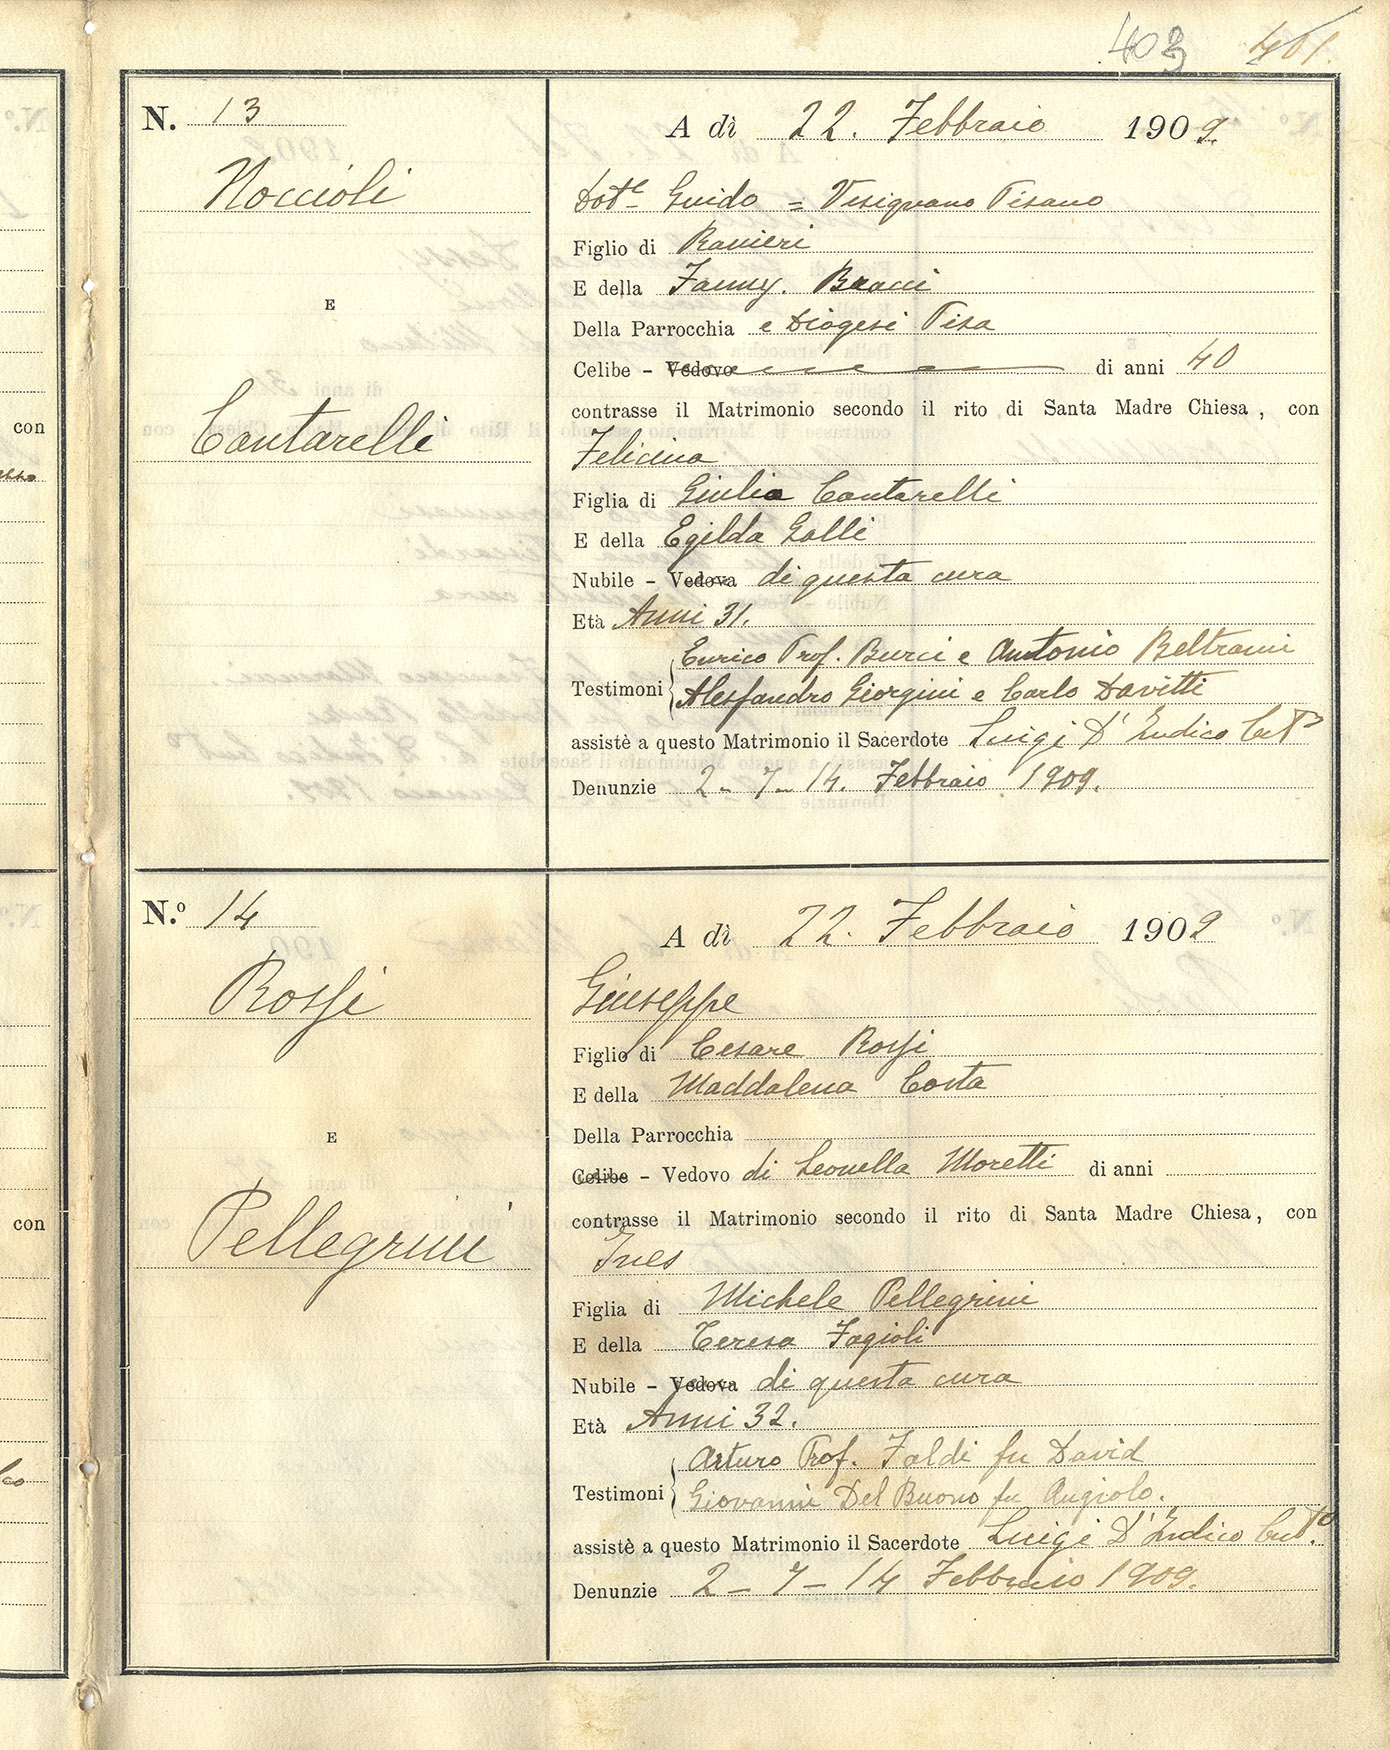 403 401.
N. 13
A dì 22. Febbraio 1909
Noccioli
Dotte Guido = Visignano Pisano
Figlio di Ranieri
E
E della Fanny. Bracci
Della Parrocchia e Diogesi Pisa
Celibe - Vedovo di anni 40
contrasse il Matrimonio secondo il rito di Santa Madre Chiesa, con
Cantarelli
Felicina
Figlia di Giulio Cantarelli
E della Egilda Galli
Nubile - Vedova di questa cura
Età Anni 31.
Enrico Prof. Burci e Antonio Beltrami
Testimoni Alessandro Giorgini e Carlo Davitti
assistè a questo Matrimonio il Sacerdote Luigi D'Indico Curto
Denunzie 2 - 7 - 14. Febbraio 1909.
N.º 14
A dì 22. Febbraio 1909
Rossi
Giuseppe
Figlio di Cesare Rossi
E della Maddalena Costa
E
Della Parrocchia
Celibe - Vedovo di Leonella Moretti di anni
contrasse il Matrimonio secondo il rito di Santa Madre Chiesa, con
Pellegrini
Ines
Figlia di Michele Pellegrini
E della Teresa Fagioli
Nubile - Vedova di questa cura
Età Anni 32.
Arturo Prof. Faldi fu David
Testimoni Giovanni Del Buono fu Angiolo.
assistè a questo Matrimonio il Sacerdote Luigi D'Indico Curto.
Denunzie 2 - 7 - 14 Febbraio 1909.
con
con